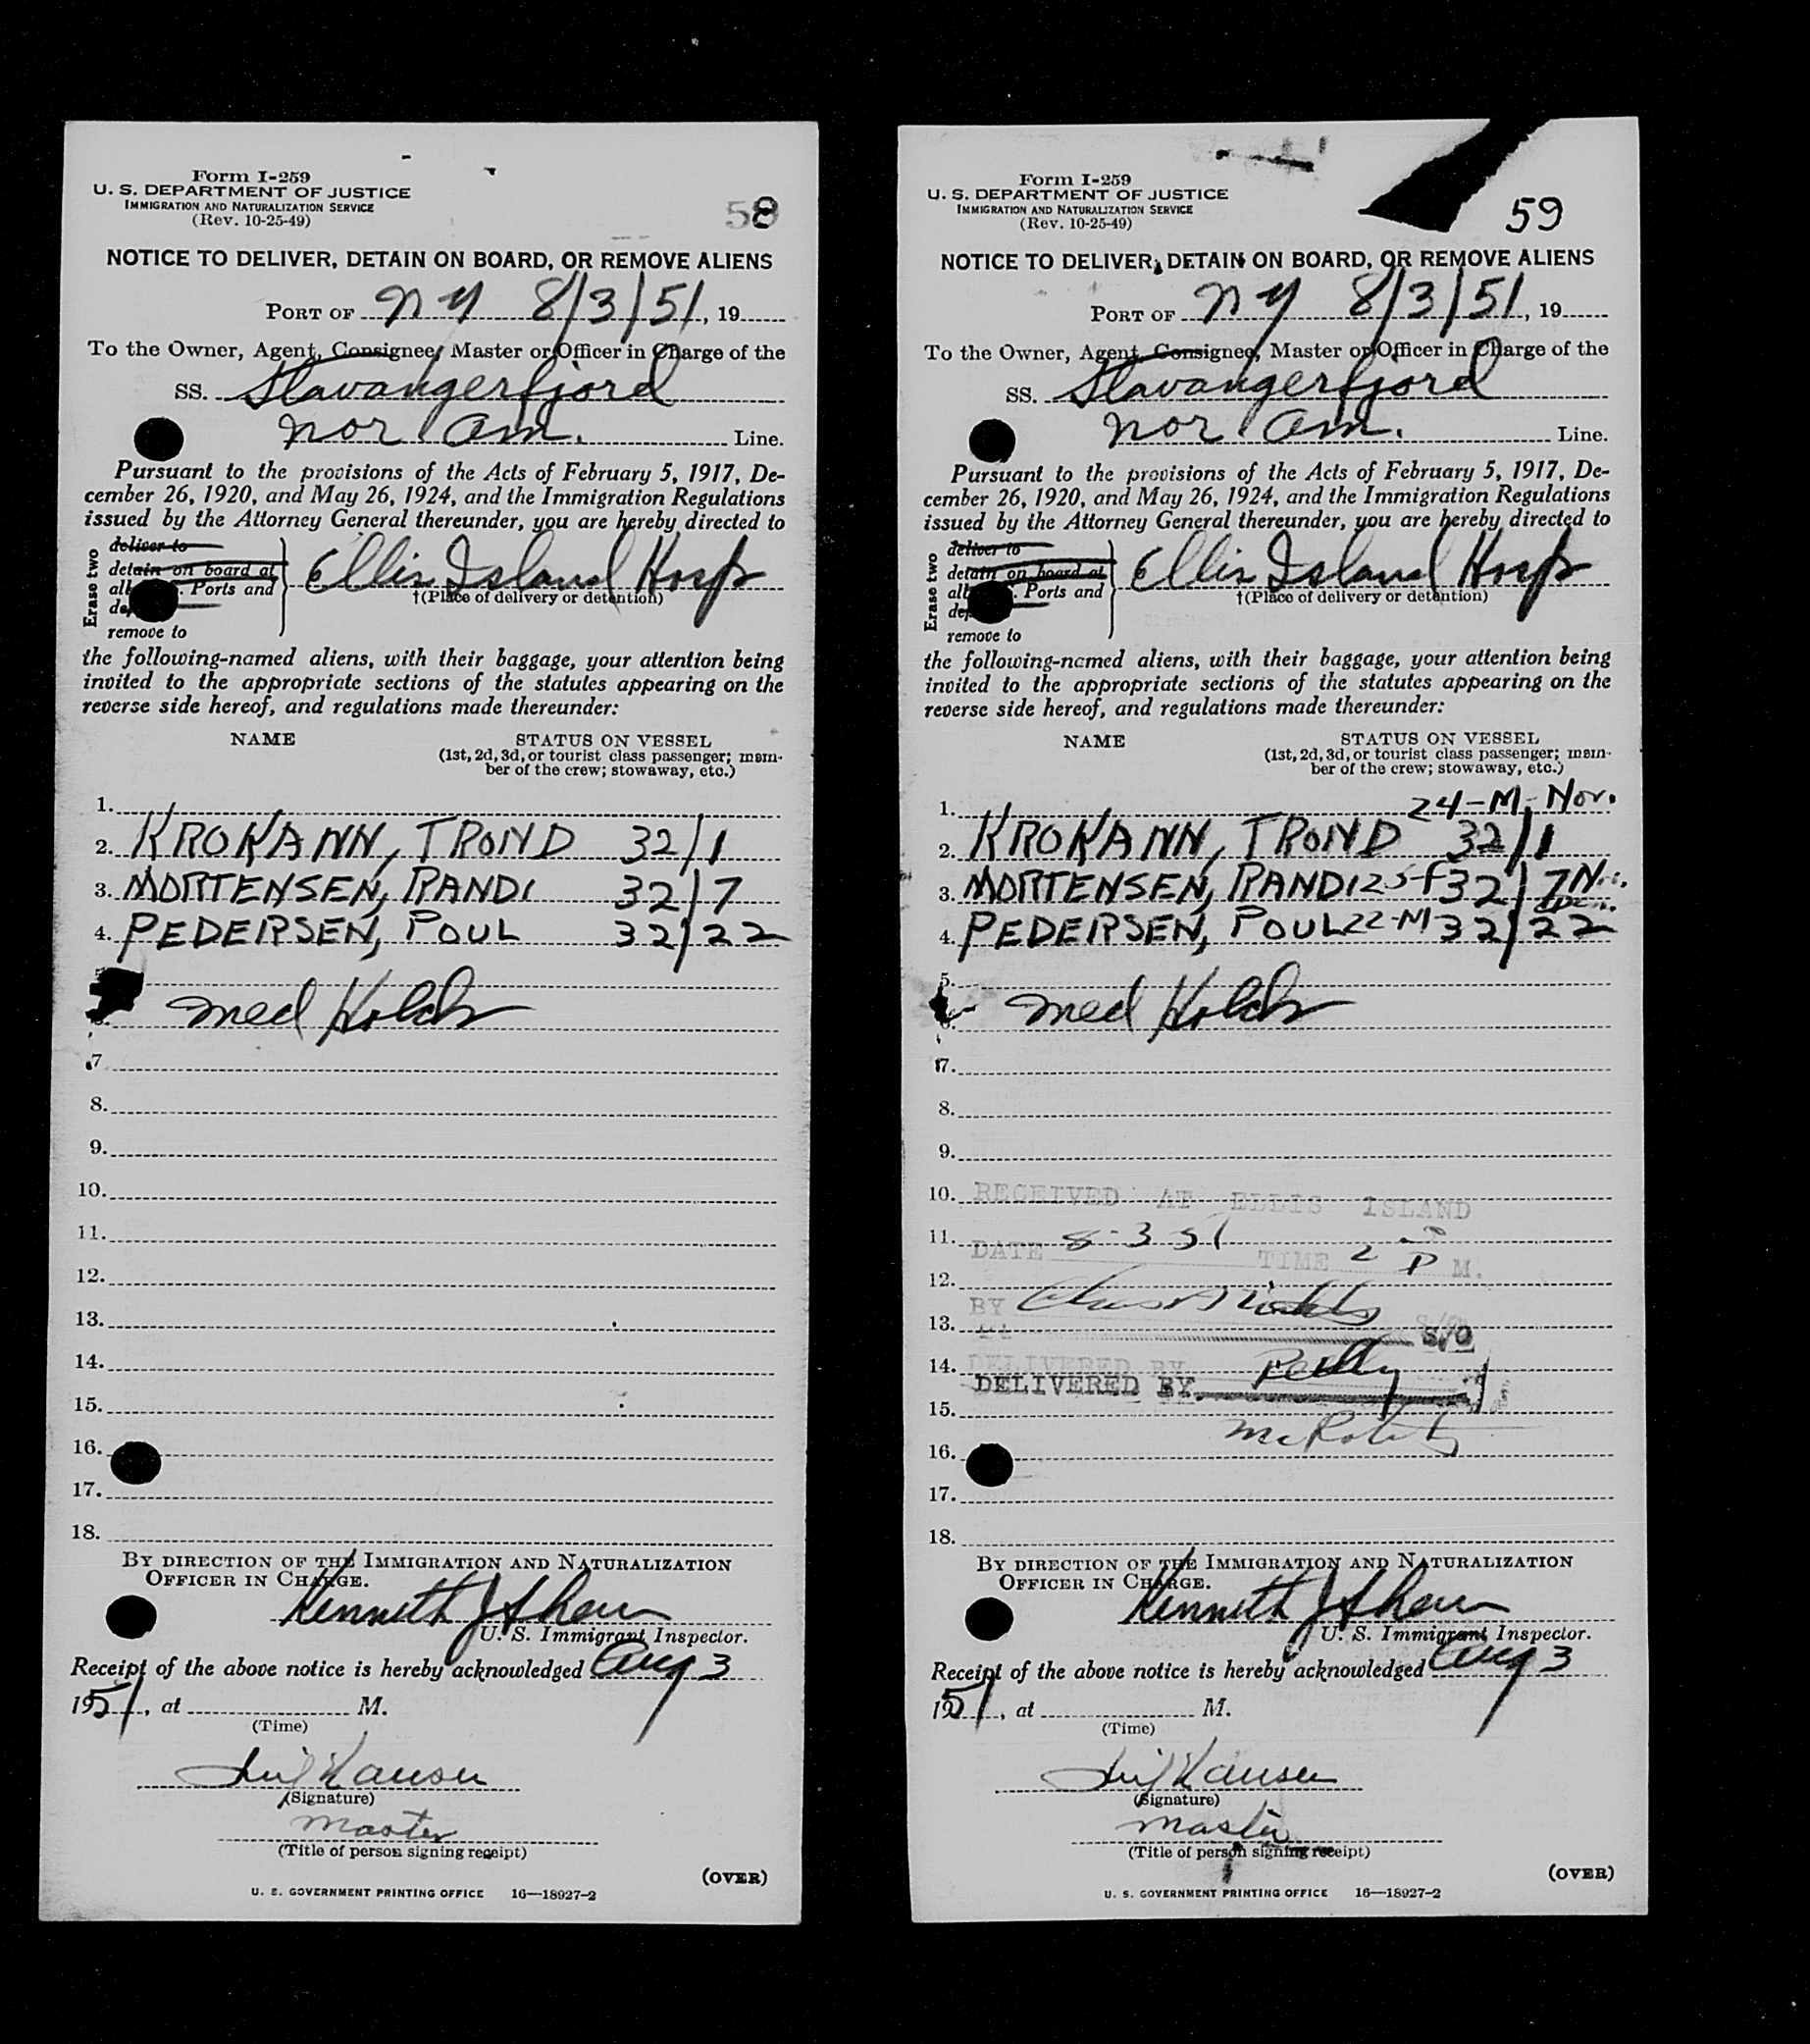 Form I-259
U. S. DEPARTMENT OF JUSTICE
IMMIGRATION AND NATURALIZATION SERVICE
(Rev. 10-25-49)
58
NOTICE TO DELIVER, DETAIN ON BOARD, OR REMOVE ALIENS
PORT OF NY 8/3/51, 19
To the Owner, Agent, Consignee, Master or Officer in Charge of the
SS. Stavangerfjord
Nor Am. Line.
Pursuant to the provisions of the Acts of February 5, 1917, De-
cember 26, 1920, and May 26, 1924, and the Immigration Regulations
issued by the Attorney General thereunder, you are hereby directed to
Erase two
deliver to
detain on board at
all Ports and
remove to
Ellis Island Hosp
†(Place of delivery or detention)
the following-named aliens, with their baggage, your attention being
invited to the appropriate sections of the statutes appearing on the
reverse side hereof, and regulations made thereunder:
NAME STATUS ON VESSEL
(1st, 2d, 3d, or tourist class passenger; mem-
ber of the crew; stowaway, etc.)
1.
2. KROKANN, TROND 32/1
3. MORTENSEN, RANDI 32/7
4. PEDERSEN, POUL 32/22
Med Hold
7
8.
9.
10.
11.
12.
13.
14.
15.
16.
17.
18.
BY DIRECTION OF THE IMMIGRATION AND NATURALIZATION
OFFICER IN CHARGE.
Kenneth J Shaw
U. S. Immigrant Inspector.
Receipt of the above notice is hereby acknowledged Aug 3
1951, at M.
(Time)
(Signature)
Master
(Title of person signing receipt)
(OVER)
U. S. GOVERNMENT PRINTING OFFICE 16—18927-2
Form I-259
U. S. DEPARTMENT OF JUSTICE
IMMIGRATION AND NATURALIZATION SERVICE
(Rev. 10-25-49)
59
NOTICE TO DELIVER, DETAIN ON BOARD, OR REMOVE ALIENS
PORT OF NY 8/3/51, 19
To the Owner, Agent, Consignee, Master or Officer in Charge of the
SS. Stavangerfjord
Nor Am. Line.
Pursuant to the provisions of the Acts of February 5, 1917, De-
cember 26, 1920, and May 26, 1924, and the Immigration Regulations
issued by the Attorney General thereunder, you are hereby directed to
Erase two
deliver to
detain on board at
all Ports and
remove to
Ellis Island Hosp
†(Place of delivery or detention)
the following-named aliens, with their baggage, your attention being
invited to the appropriate sections of the statutes appearing on the
reverse side hereof, and regulations made thereunder:
NAME STATUS ON VESSEL
(1st, 2d, 3d, or tourist class passenger; mem-
ber of the crew; stowaway, etc.)
1. 24-M-Nor.
2. KROKANN, TROND 32/1
3. MORTENSEN, RANDI 25-f 32/7
4. PEDERSEN, POUL 22-M 32/22
5.
Med Hold
7.
8.
9.
10. RECEIVED AT ELLIS ISLAND
11. DATE 8-3 51 TIME 2 P M.
12.
BY
13. S/O
14. DELIVERED BY
DELIVERED BY Reilly
15.
16.
17.
18.
BY DIRECTION OF THE IMMIGRATION AND NATURALIZATION
OFFICER IN CHARGE.
Kenneth J Shaw
U. S. Immigrant Inspector.
Receipt of the above notice is hereby acknowledged Aug 3
1951, at M.
(Time)
(Signature)
Master
(Title of person signing receipt)
(OVER)
U. S. GOVERNMENT PRINTING OFFICE 16—18927-2